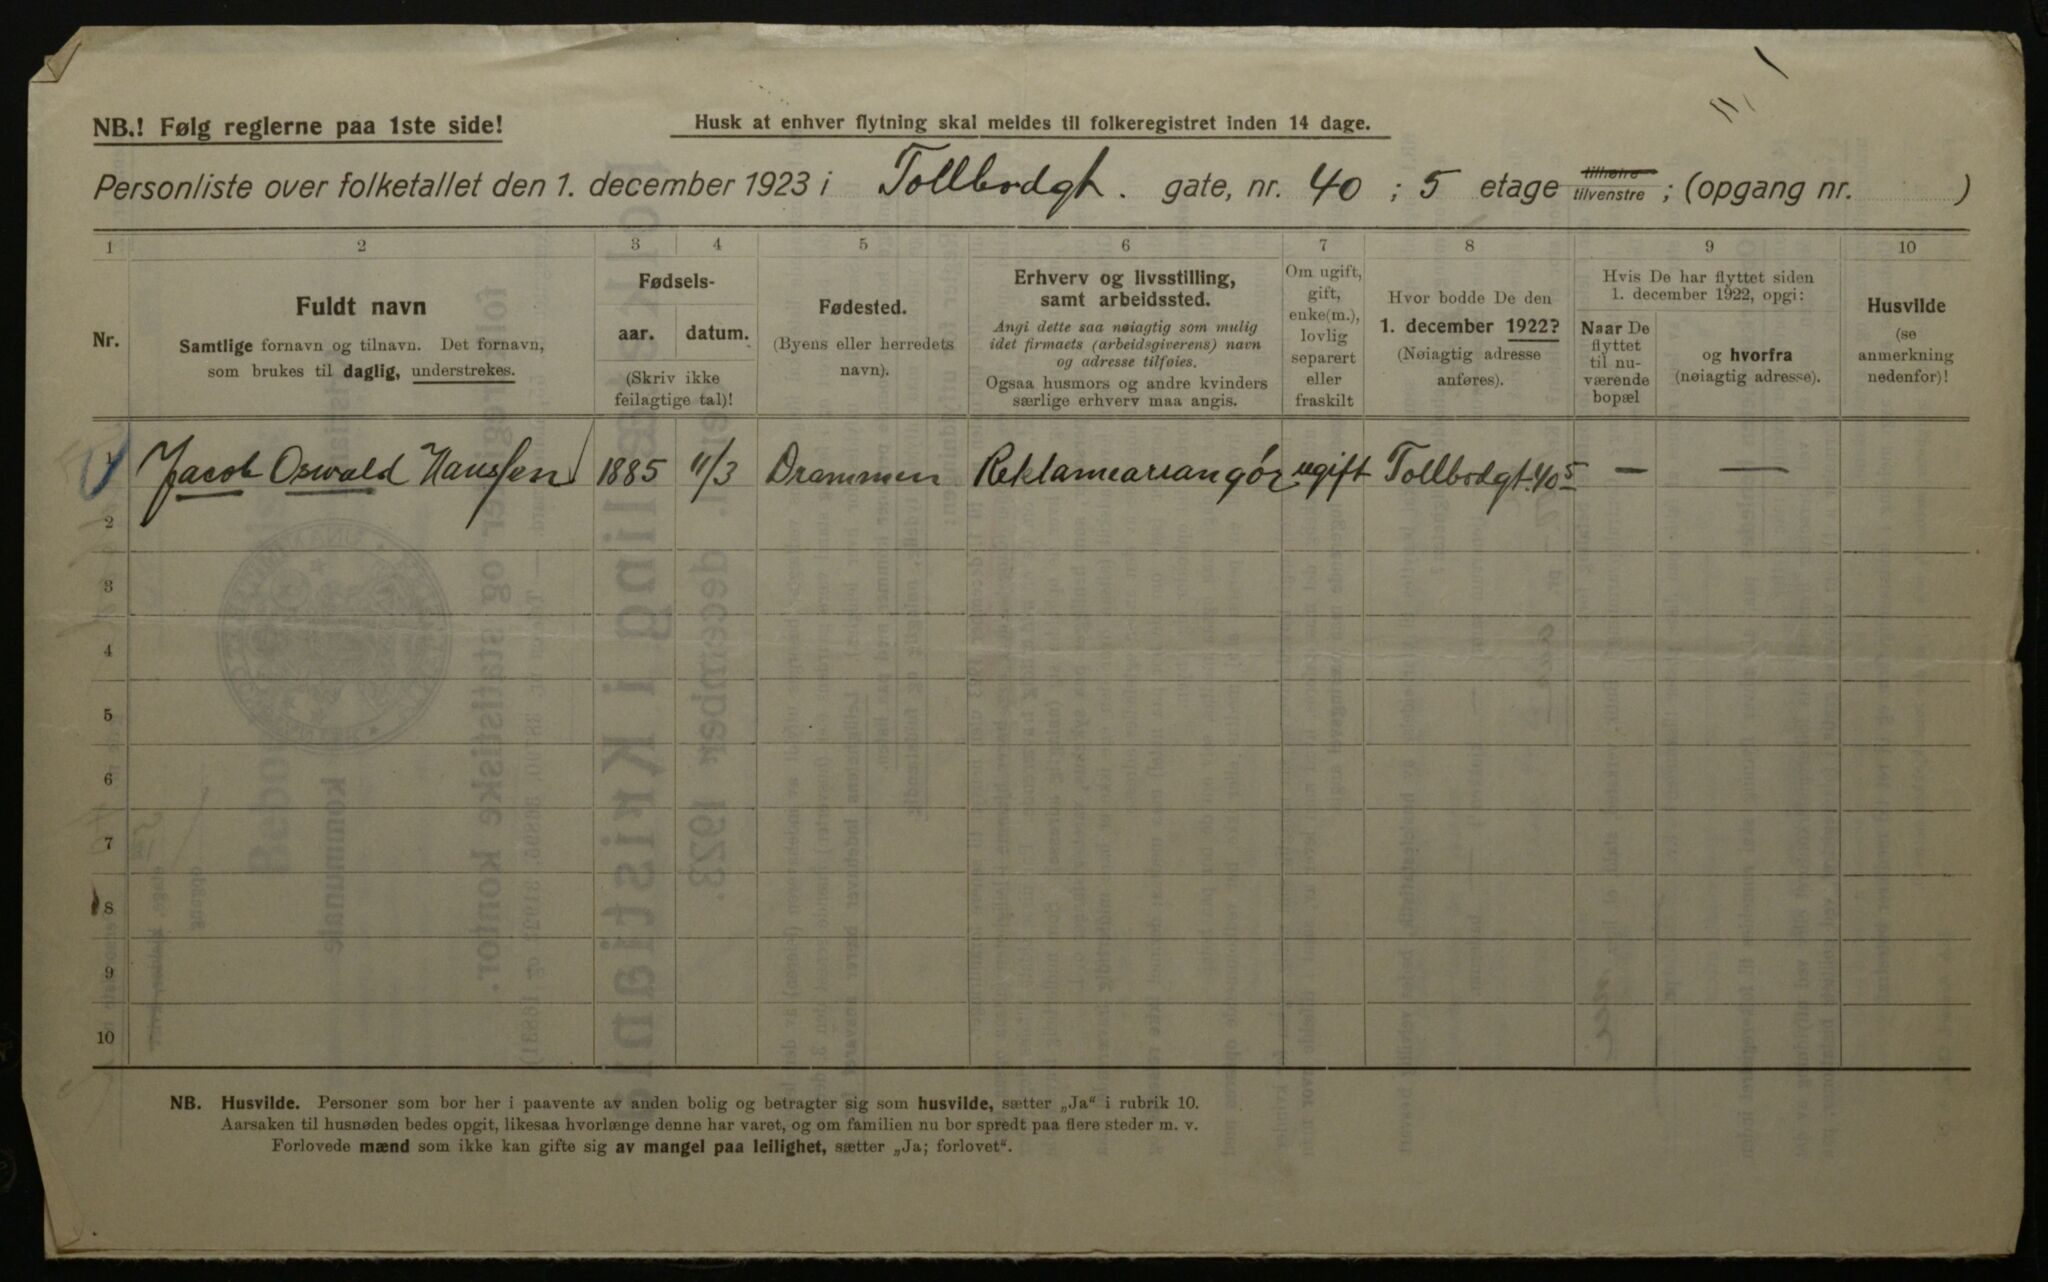 NB.! Følg reglerne paa 1ste side!
Husk at enhver flytning skal meldes til folkeregistret inden 14 dage.
Personliste over folketallet den 1. december 1923 i Tollbodgt. gate, nr. 40 ; 5 etage tilhøire tilvenstre ; (opgang nr. )
1 2 3 4 5 6 7 8 9 10
Nr.
Fuldt navn
Samtlige fornavn og tilnavn. Det fornavn,
som brukes til daglig, understrekes.
Fødsels-
aar. datum.
(Skriv ikke
feilagtige tal)!
Fødested.
(Byens eller herredets
navn).
Erhverv og livsstilling,
samt arbeidssted.
Angi dette saa nøiagtig som mulig
idet firmaets (arbeidsgiverens) navn
og adresse tilføies.
Ogsaa husmors og andre kvinders
særlige erhverv maa angis.
Om ugift,
gift,
enke(m.),
lovlig
separert
eller
fraskilt
Hvor bodde De den
1. december 1922?
(Nøiagtig adresse
anføres).
Hvis De har flyttet siden
1. december 1922, opgi:
Naar De
flyttet
til nu-
værende
bopæl
og hvorfra
(nøiagtig adresse).
Husvilde
(se
anmerkning
nedenfor)!
1 Jacob Oswald Hanssen 1885 11/3 Drammen Reklamearrangør ugift Tollbodgt. 40 5 — —
2
3
4
5
6
7
8
9
10
NB. Husvilde. Personer som bor her i paavente av anden bolig og betragter sig som husvilde, sætter „Ja“ i rubrik 10.
Aarsaken til husnøden bedes opgit, likesaa hvorlænge denne har varet, og om familien nu bor spredt paa flere steder m. v.
Forlovede mænd som ikke kan gifte sig av mangel paa leilighet, sætter „Ja; forlovet“.